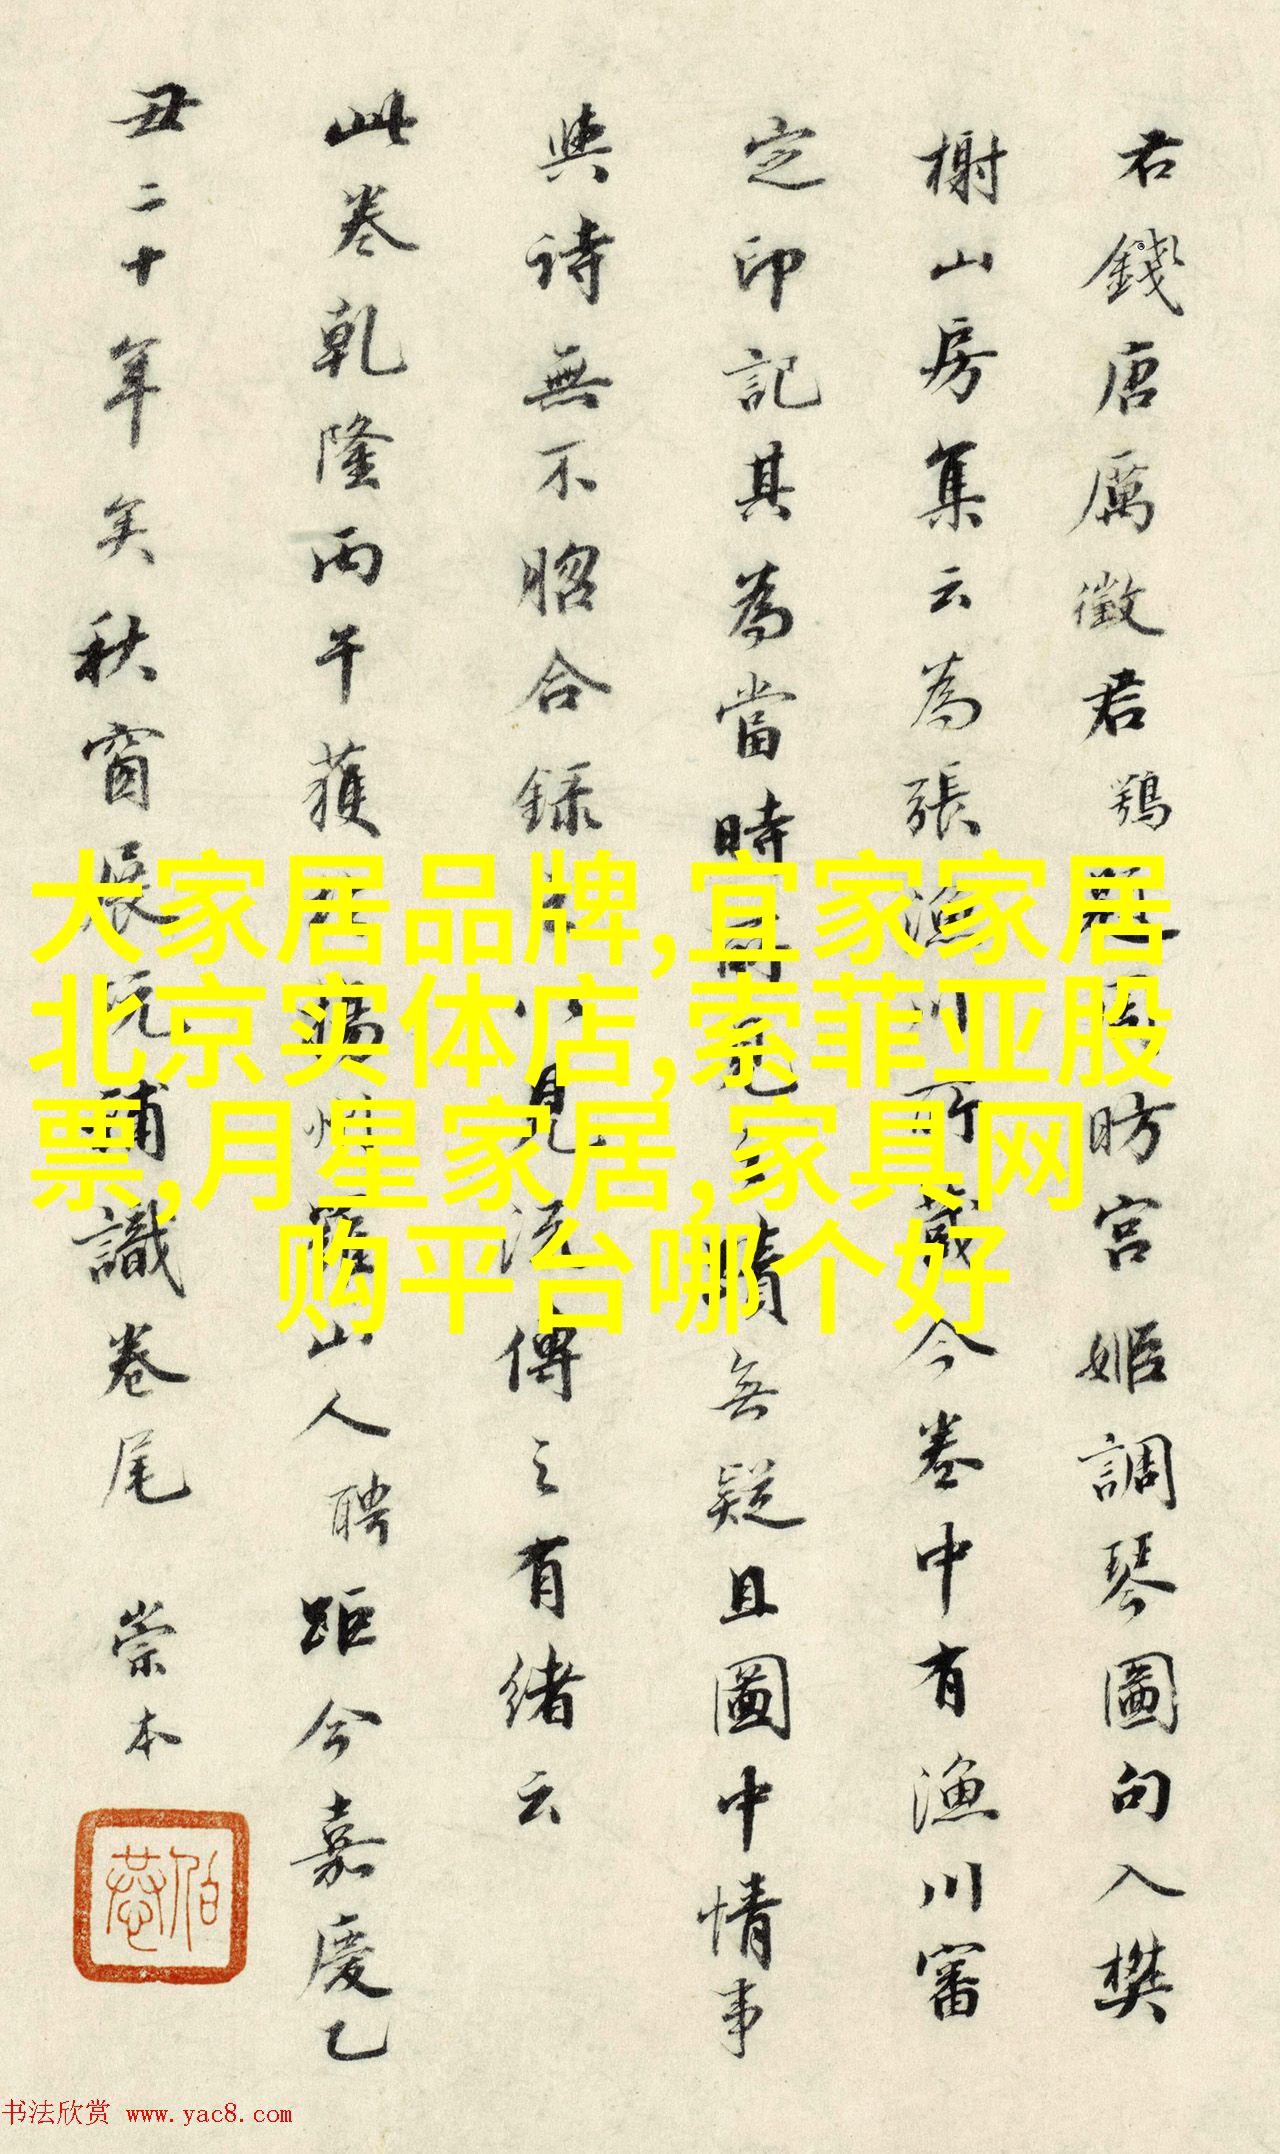 君錢唐厲徵君鶚題周昉宮姬調琴圖句入樊
榭山房集云為張漁川所藏今卷中有漁川審
定印記其為當時真蹟無疑且圖中情事
與詩無不脗合錄見流傳之有緒云
此卷乾隆丙午獲山人聘距今嘉慶乙
丑二十年矣秋窗展玩補識卷尾 崇本
大家居品牌,宜家家居
北京实体店,索菲亚股
票,月星家居,家具网
购平台哪个好
书法欣赏 www.yac8.com